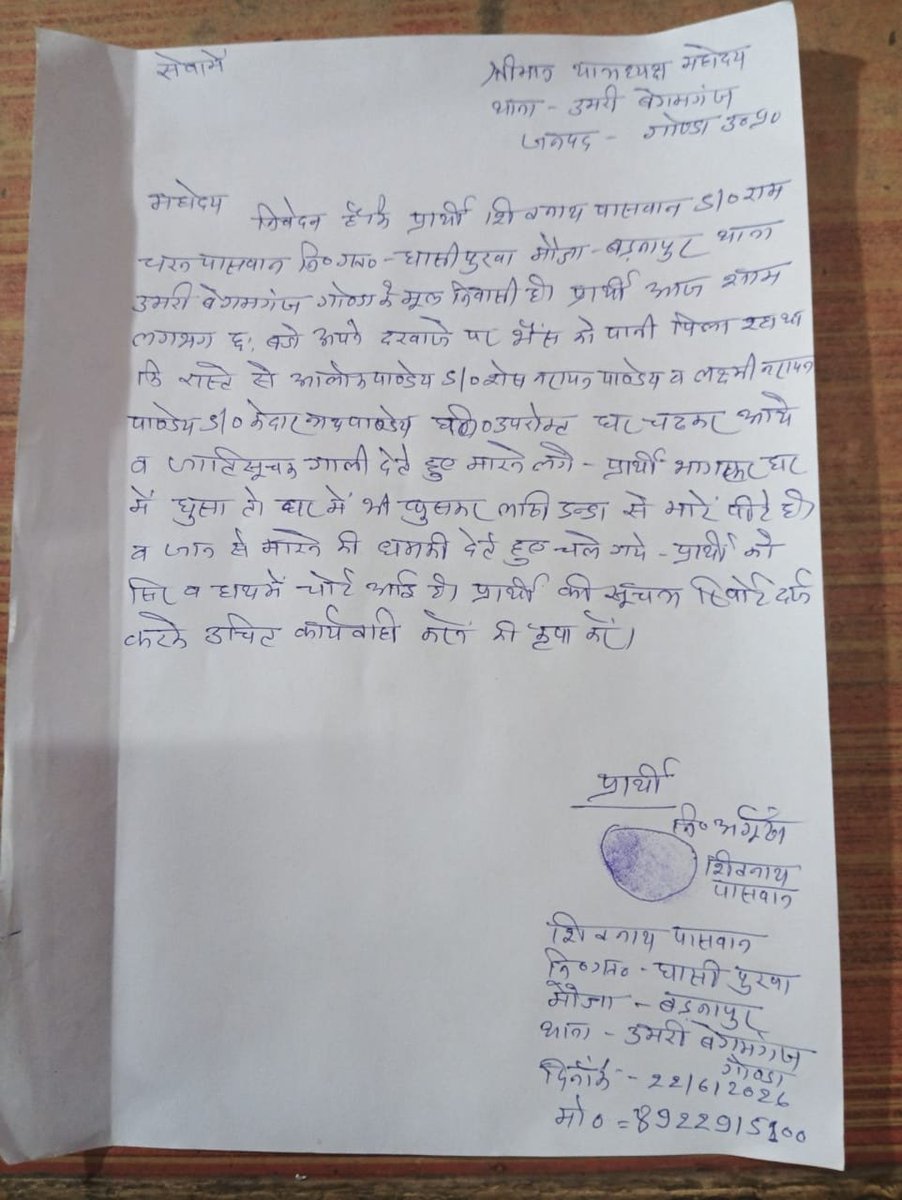 सेवामें
श्रीमान थानाध्यक्ष महोदय
थाना - उमरी बेगमगंज
जनपद - गोण्डा उ०प्र०
महोदय
निवेदन है कि प्रार्थी शिवनाथ पासवान S/O राम
चरन पासवान नि०ग्रा० - घासीपुरवा मौजा - बड़नापुर थाना
उमरी बेगमगंज गोण्डा के मूल निवासी है। प्रार्थी आज शाम
लगभग छ: बजे अपने दरवाजे पर भैंस को पानी पिला रहा था
कि रास्ते से आलोक पाण्डेय S/O शेष नरायन पाण्डेय व लक्ष्मी नरायन
पाण्डेय S/O केदार नाथ पाण्डेय उपरोक्त घर चढकर आये
व जातिसूचक गाली देते हुए मारने लगे - प्रार्थी भागकर घर
में घुसा तो घर में भी घुसकर लाठी डन्डा से मारें पीटे है।
व जान से मारने की धमकी देते हुए चले गये - प्रार्थी को
सिर व हाथ में चोटे आई है। प्रार्थी की सूचना रिपोर्ट दर्ज
करके उचित कार्यवाही करने की कृपा करें।
प्रार्थी
नि०अंगूठा
शिवनाथ
पासवान
शिवनाथ पासवान
नि०ग्रा० - घासीपुरवा
मौजा - बड़नापुर
थाना - उमरी बेगमगंज
गोण्डा
दिनाँक - 22/6/2026
मो० = 8922915100